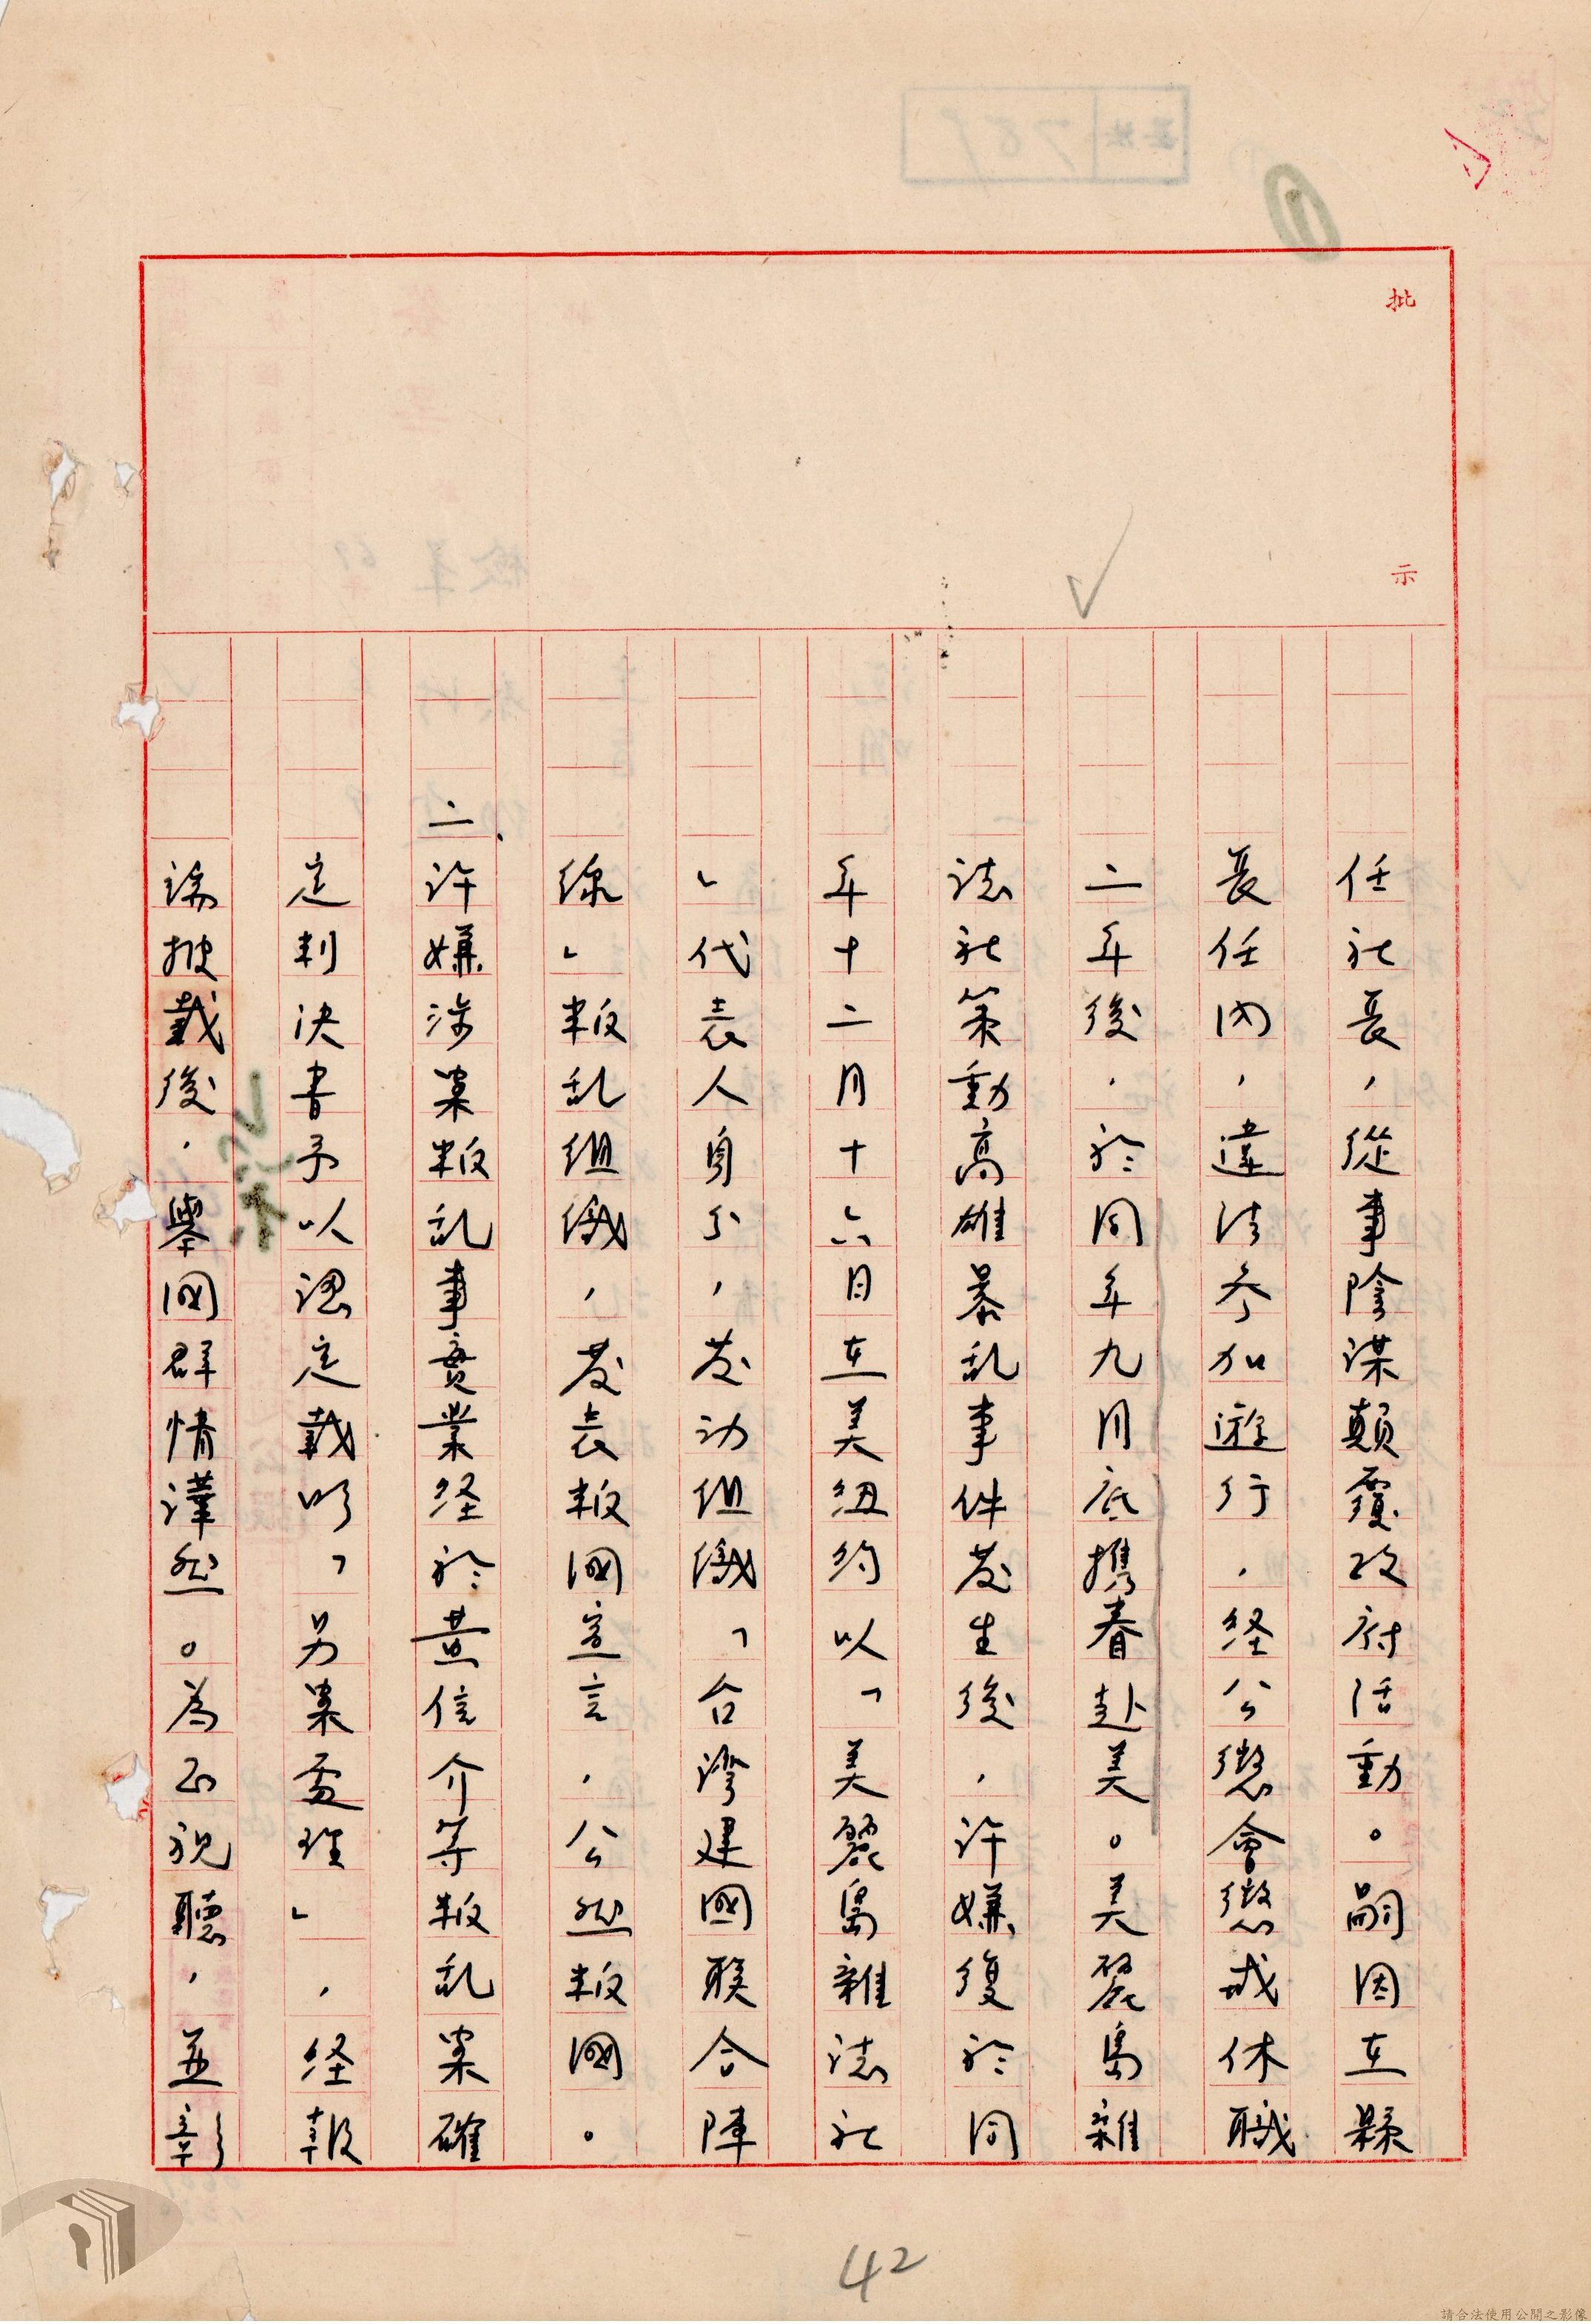 批示
任社長，從事陰謀顛覆政府活動。嗣因在縣
長任內，違法參加遊行，経公懲會懲戒休職
二年後，於同年九月底携眷赴美。美麗島雜
誌社策動高雄暴乱事件发生後，許嫌復於同
年十二月十六日在美紐約以「美麗島雜誌社
」代表人身分，发动組織「台灣建國联合陣
線」叛乱組織，发表叛國宣言，公然叛國。
二、許嫌涉案叛乱事实業経於黃信介等叛乱案確
定判決書予以認定載明「另案處理」，経報
端披載後，舉國群情譁然。為正視聽，並彰
42
請合法使用公開之影像